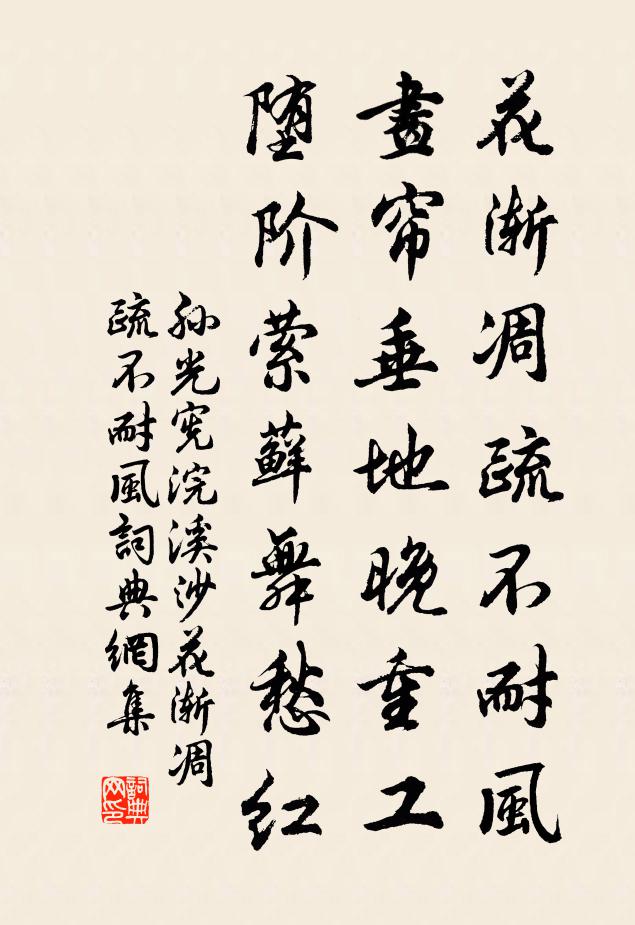 花渐凋疏不耐風
畫帘垂地晚重工
堕阶萦蘚舞愁红
孙光宪浣溪沙花渐凋
疏不耐風詞典網集
詞典网印